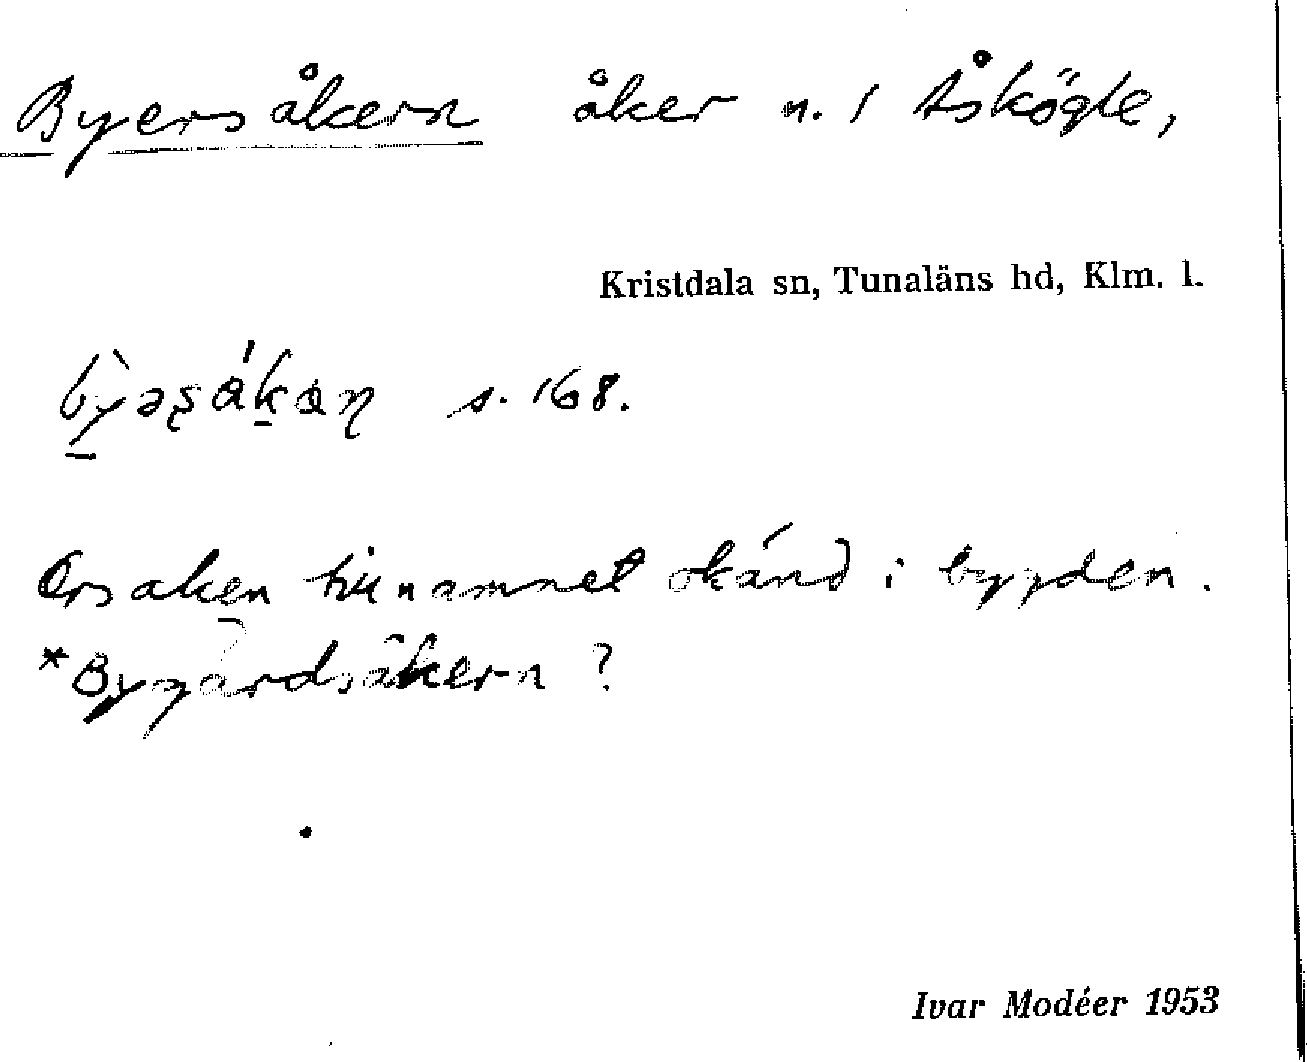 Byersåkern åker n. 1 Åskögle,
Kristdala sn, Tunaläns hd, Klm. l.
s. 168.
Orsaken till namnet okänd i bygden.
*Bygårdsåkern?
Ivar Modéer 1953